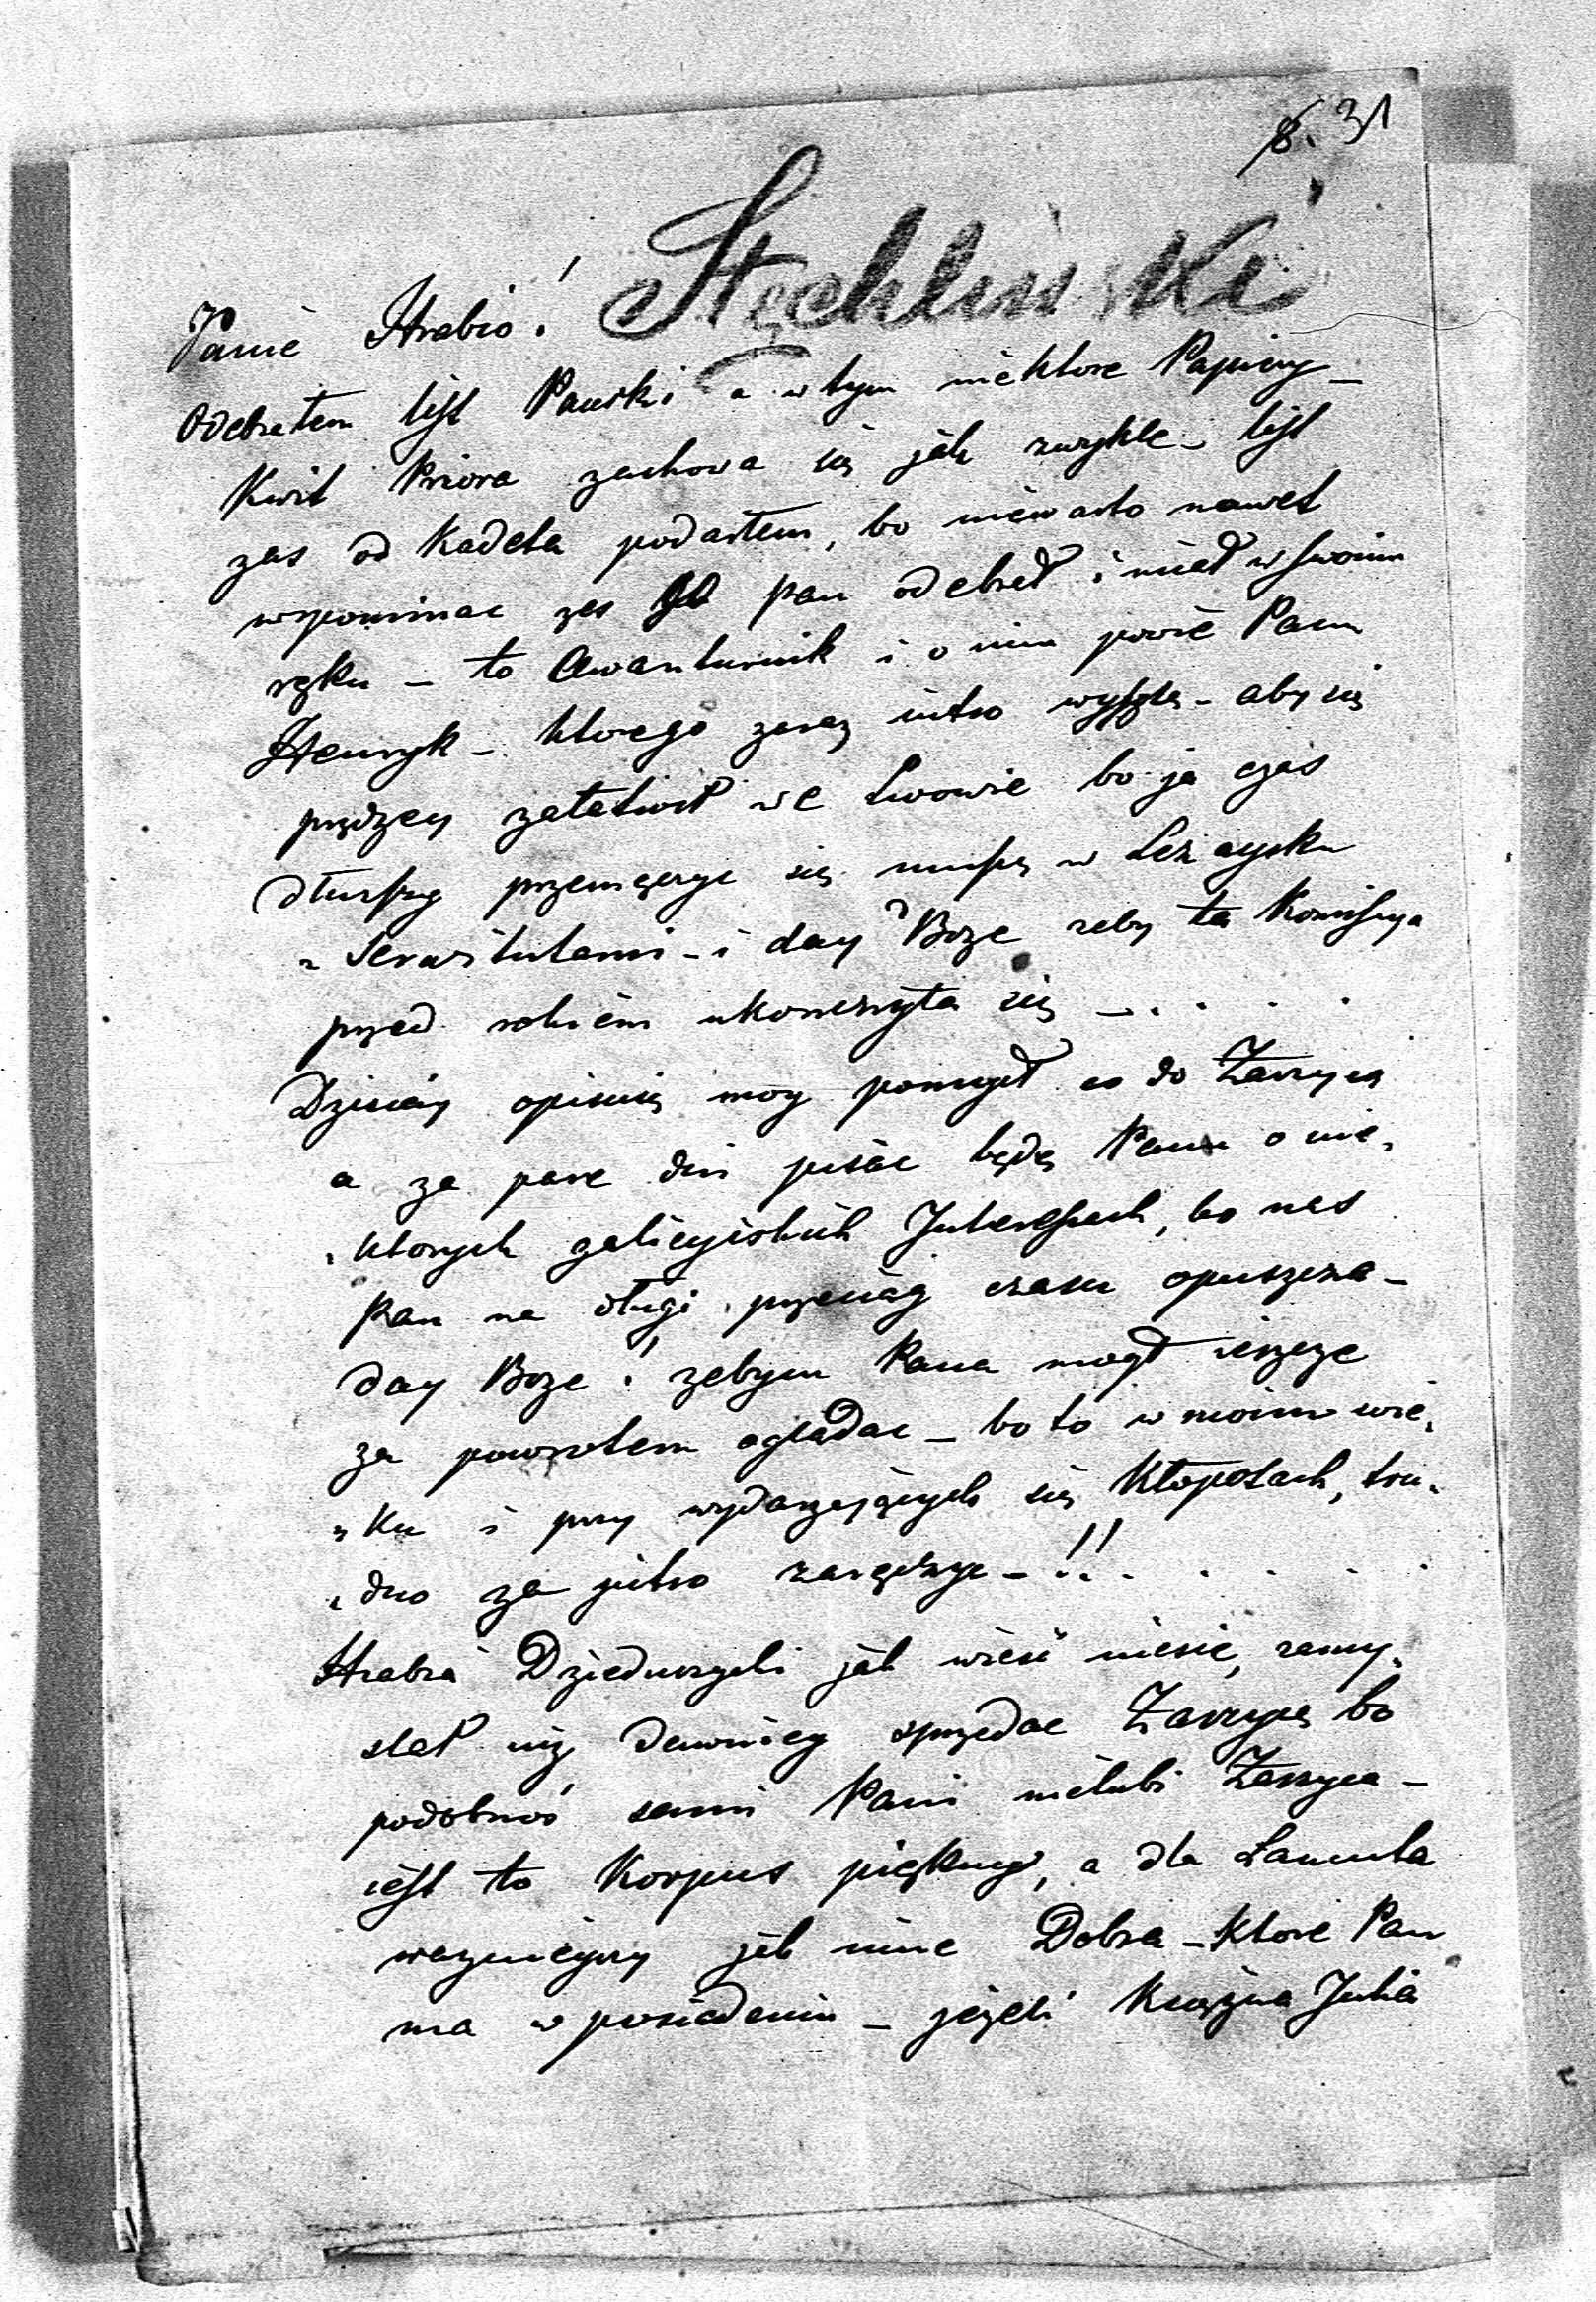 8. 31
Stęchliński
Panie Hrabio!
Odebrałem list Pański a w tym niektore Papiery –
Kwit Priora zachowa się jak zwykle – list
zas od Kadeta podarłem, bo niewarto nawet
wspominac zes go pan odebrał i miał w swoim
ręku – to Awanturnik i o nim powie Panu
Henryk – ktorego zaraz iutro wyszlę – aby się
prędzey załatwił we Lwowie bo ja czas
dłuszy przemęczyc się muszę w Leżaysku
z Serwitutami – i day Boze zeby ta Komissya
przed rokiem ukonczyła się – . . . .
Dzisiay opisuię moy pomysł co do Zarzyca
a za pare dni pisac będę Panu o nie„
„ktorych galicyiskich Interessach, bo nas
Pan na długi przeciąg czasu opuszcza –
day Boze! zebym Pana mogł ieszcze
za powrotem oglądac – bo to w moim wie„
„ku i przy wydarzających się Kłopotach, tru„
„dno za jutro zaręczyc – !! . . . . .
Hrabia Dzieduszycki jak wieść niesie, zamy„
slał iuż dawniey sprzedac Zarzyce bo
podobnoś sami Pani nielubi Zarzyca –
iest to Korpus piękny, a dla Łancuta
waznieyszy jak inne Dobra – Ktore Pan
ma w posiadaniu – jezeli Xsiężna Julia